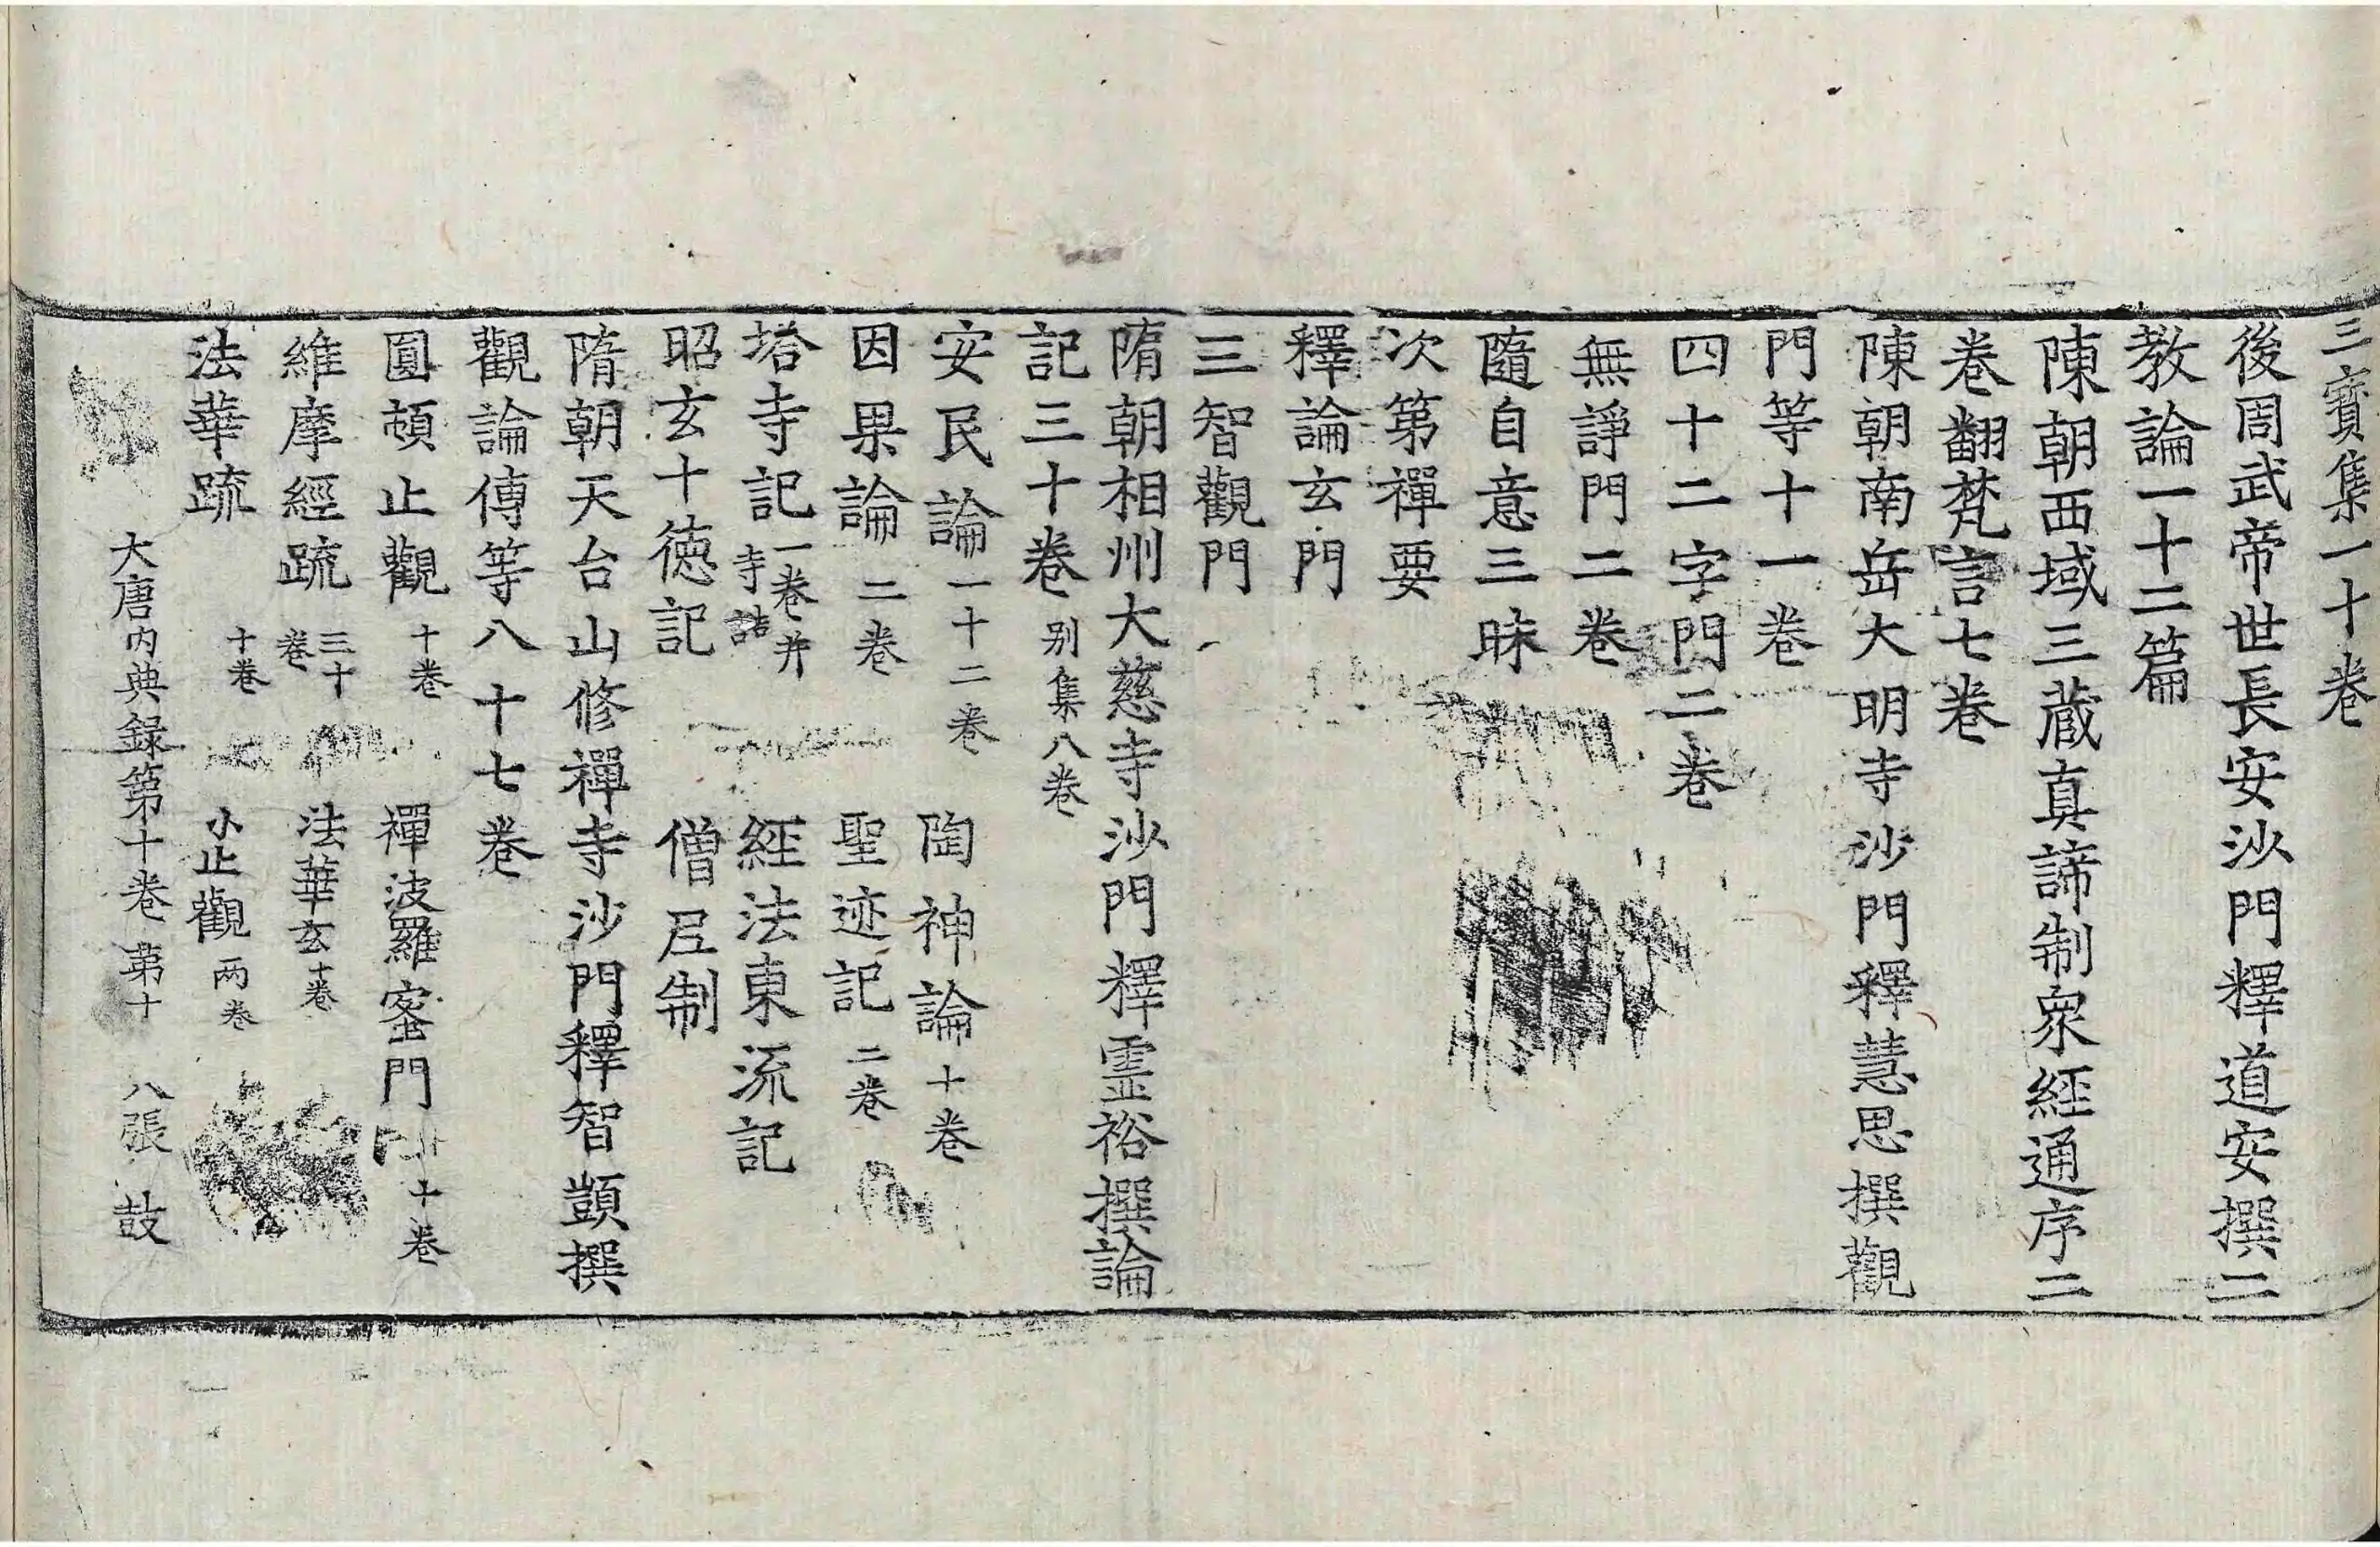 三寳集一十卷
後周武帝世長安沙門釋道安撰二
教論一十二篇
陳朝西域三藏真諦制衆經通序二
卷翻梵言七卷
陳朝南岳大明寺沙門釋慧思撰觀
門等十一卷
四十二字門二卷
無諍門二卷
隨自意三昧
次第禪要
釋論玄門
三智觀門
隋朝相州大慈寺沙門釋霊裕撰論
記三十卷别集八卷
安民論一十二卷 陶神論十卷
因果論二卷 聖迹記二卷
塔寺記一卷并寺誥 經法東流記
昭玄十徳記 僧尼制
隋朝天台山修禪寺沙門釋智顗撰
觀論傳等八十七卷
圓頓止觀十卷 禪波羅蜜門十卷
維摩經疏三十卷 法華玄十卷
法華疏十卷 小止觀两卷
大唐内典録第十卷 第十八張 鼓